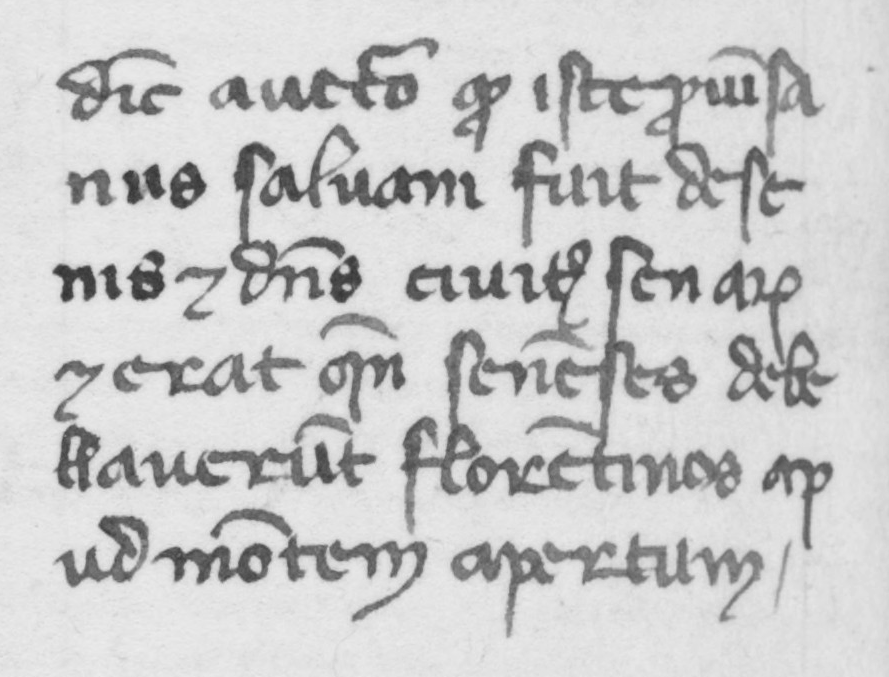 dic̄ auct̄o qꝓ iste ꝓuīsa
nus saluani fuit de se
nis ⁊ dn̄s ciuitꝭ senaꝝ
⁊ erat qn̄ senēses debe
llauerūt florētinos ap
ud mōtem apertum /